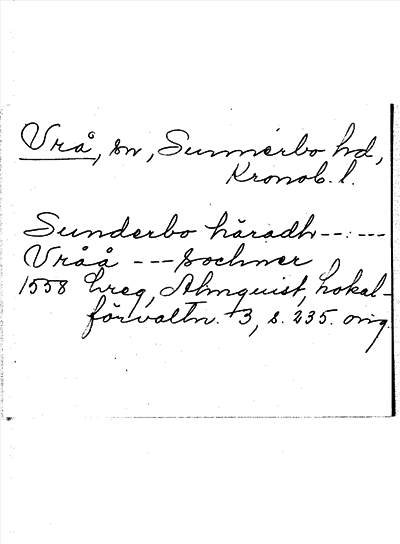 Vrå, sn, Sunnerbo hd,
Kronob. l.
Sunderbo häradh --:---
Vråå --- sochner
1558 Ereg, Almquist, Lokal-
förvaltn. 3, s. 235. orig.